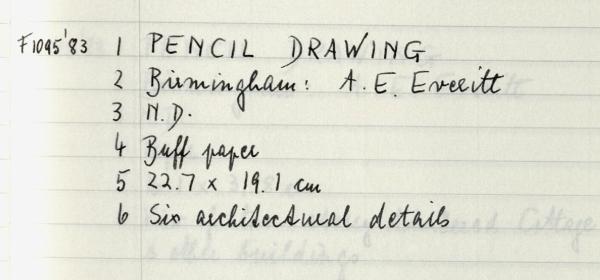 F1095'83 1 PENCIL DRAWING
2 Birmingham: A. E. Everitt
3 N.D.
4 Buff paper
5 22.7 x 19.1 cm
6 Six architectural details